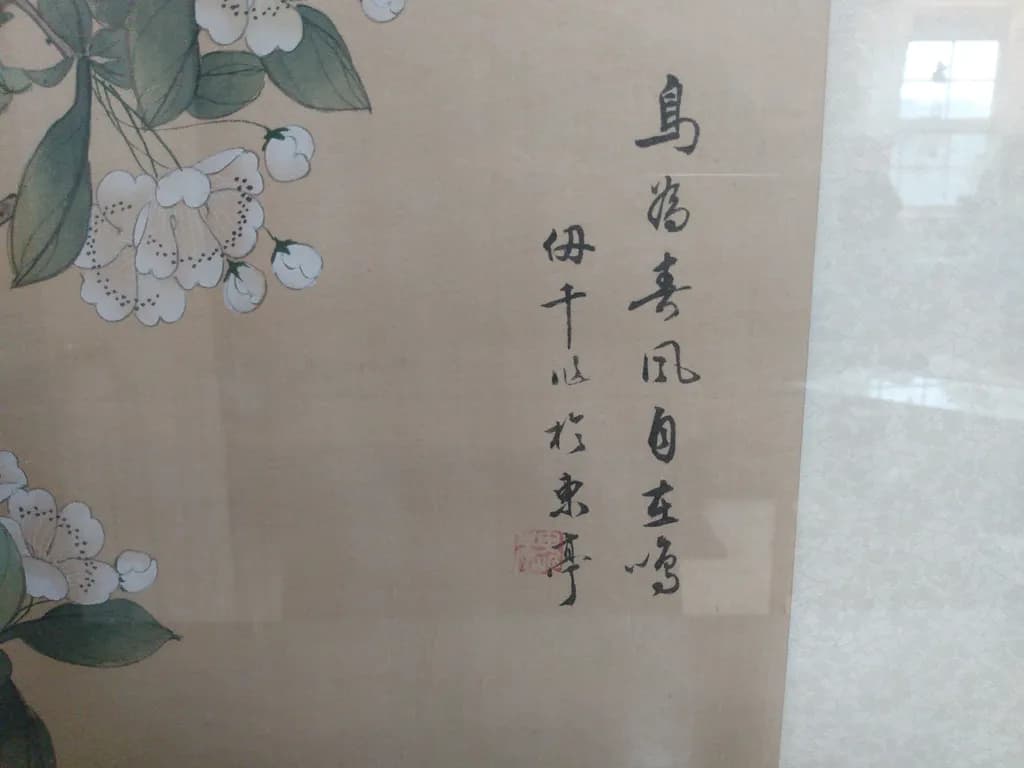 鳥為春風自在鳴
於東亭